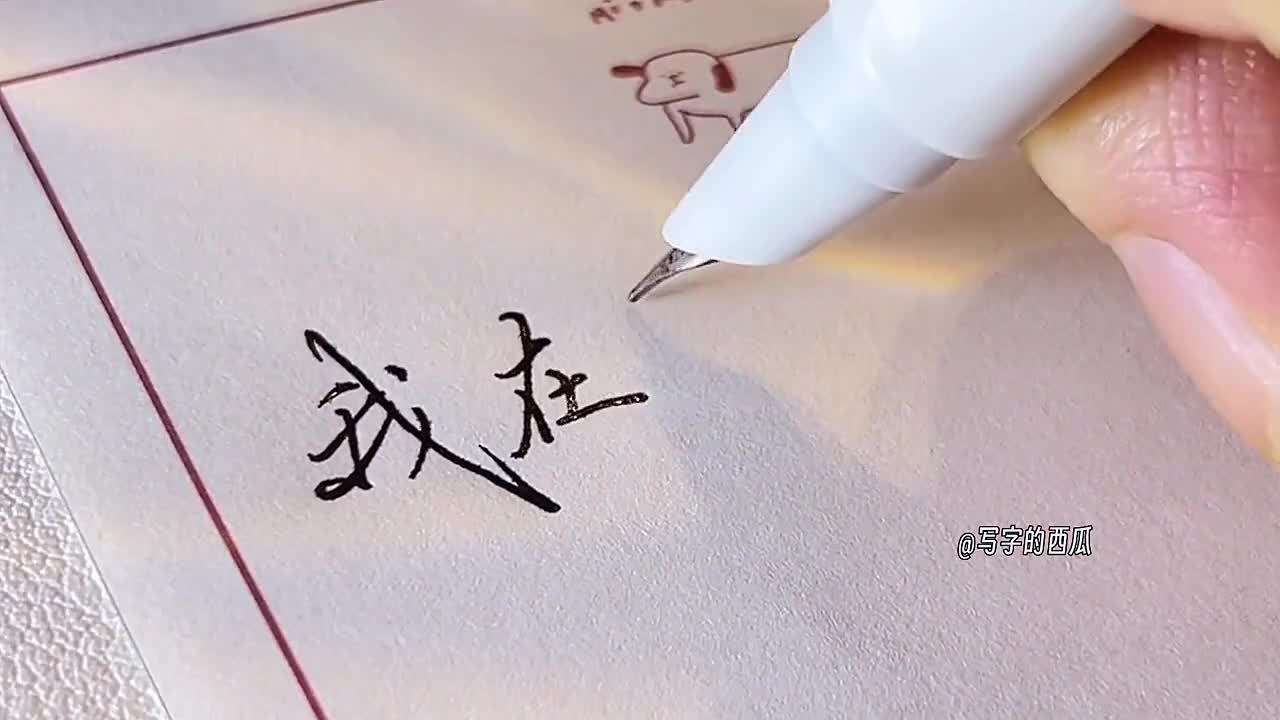 我在
@写字的西瓜